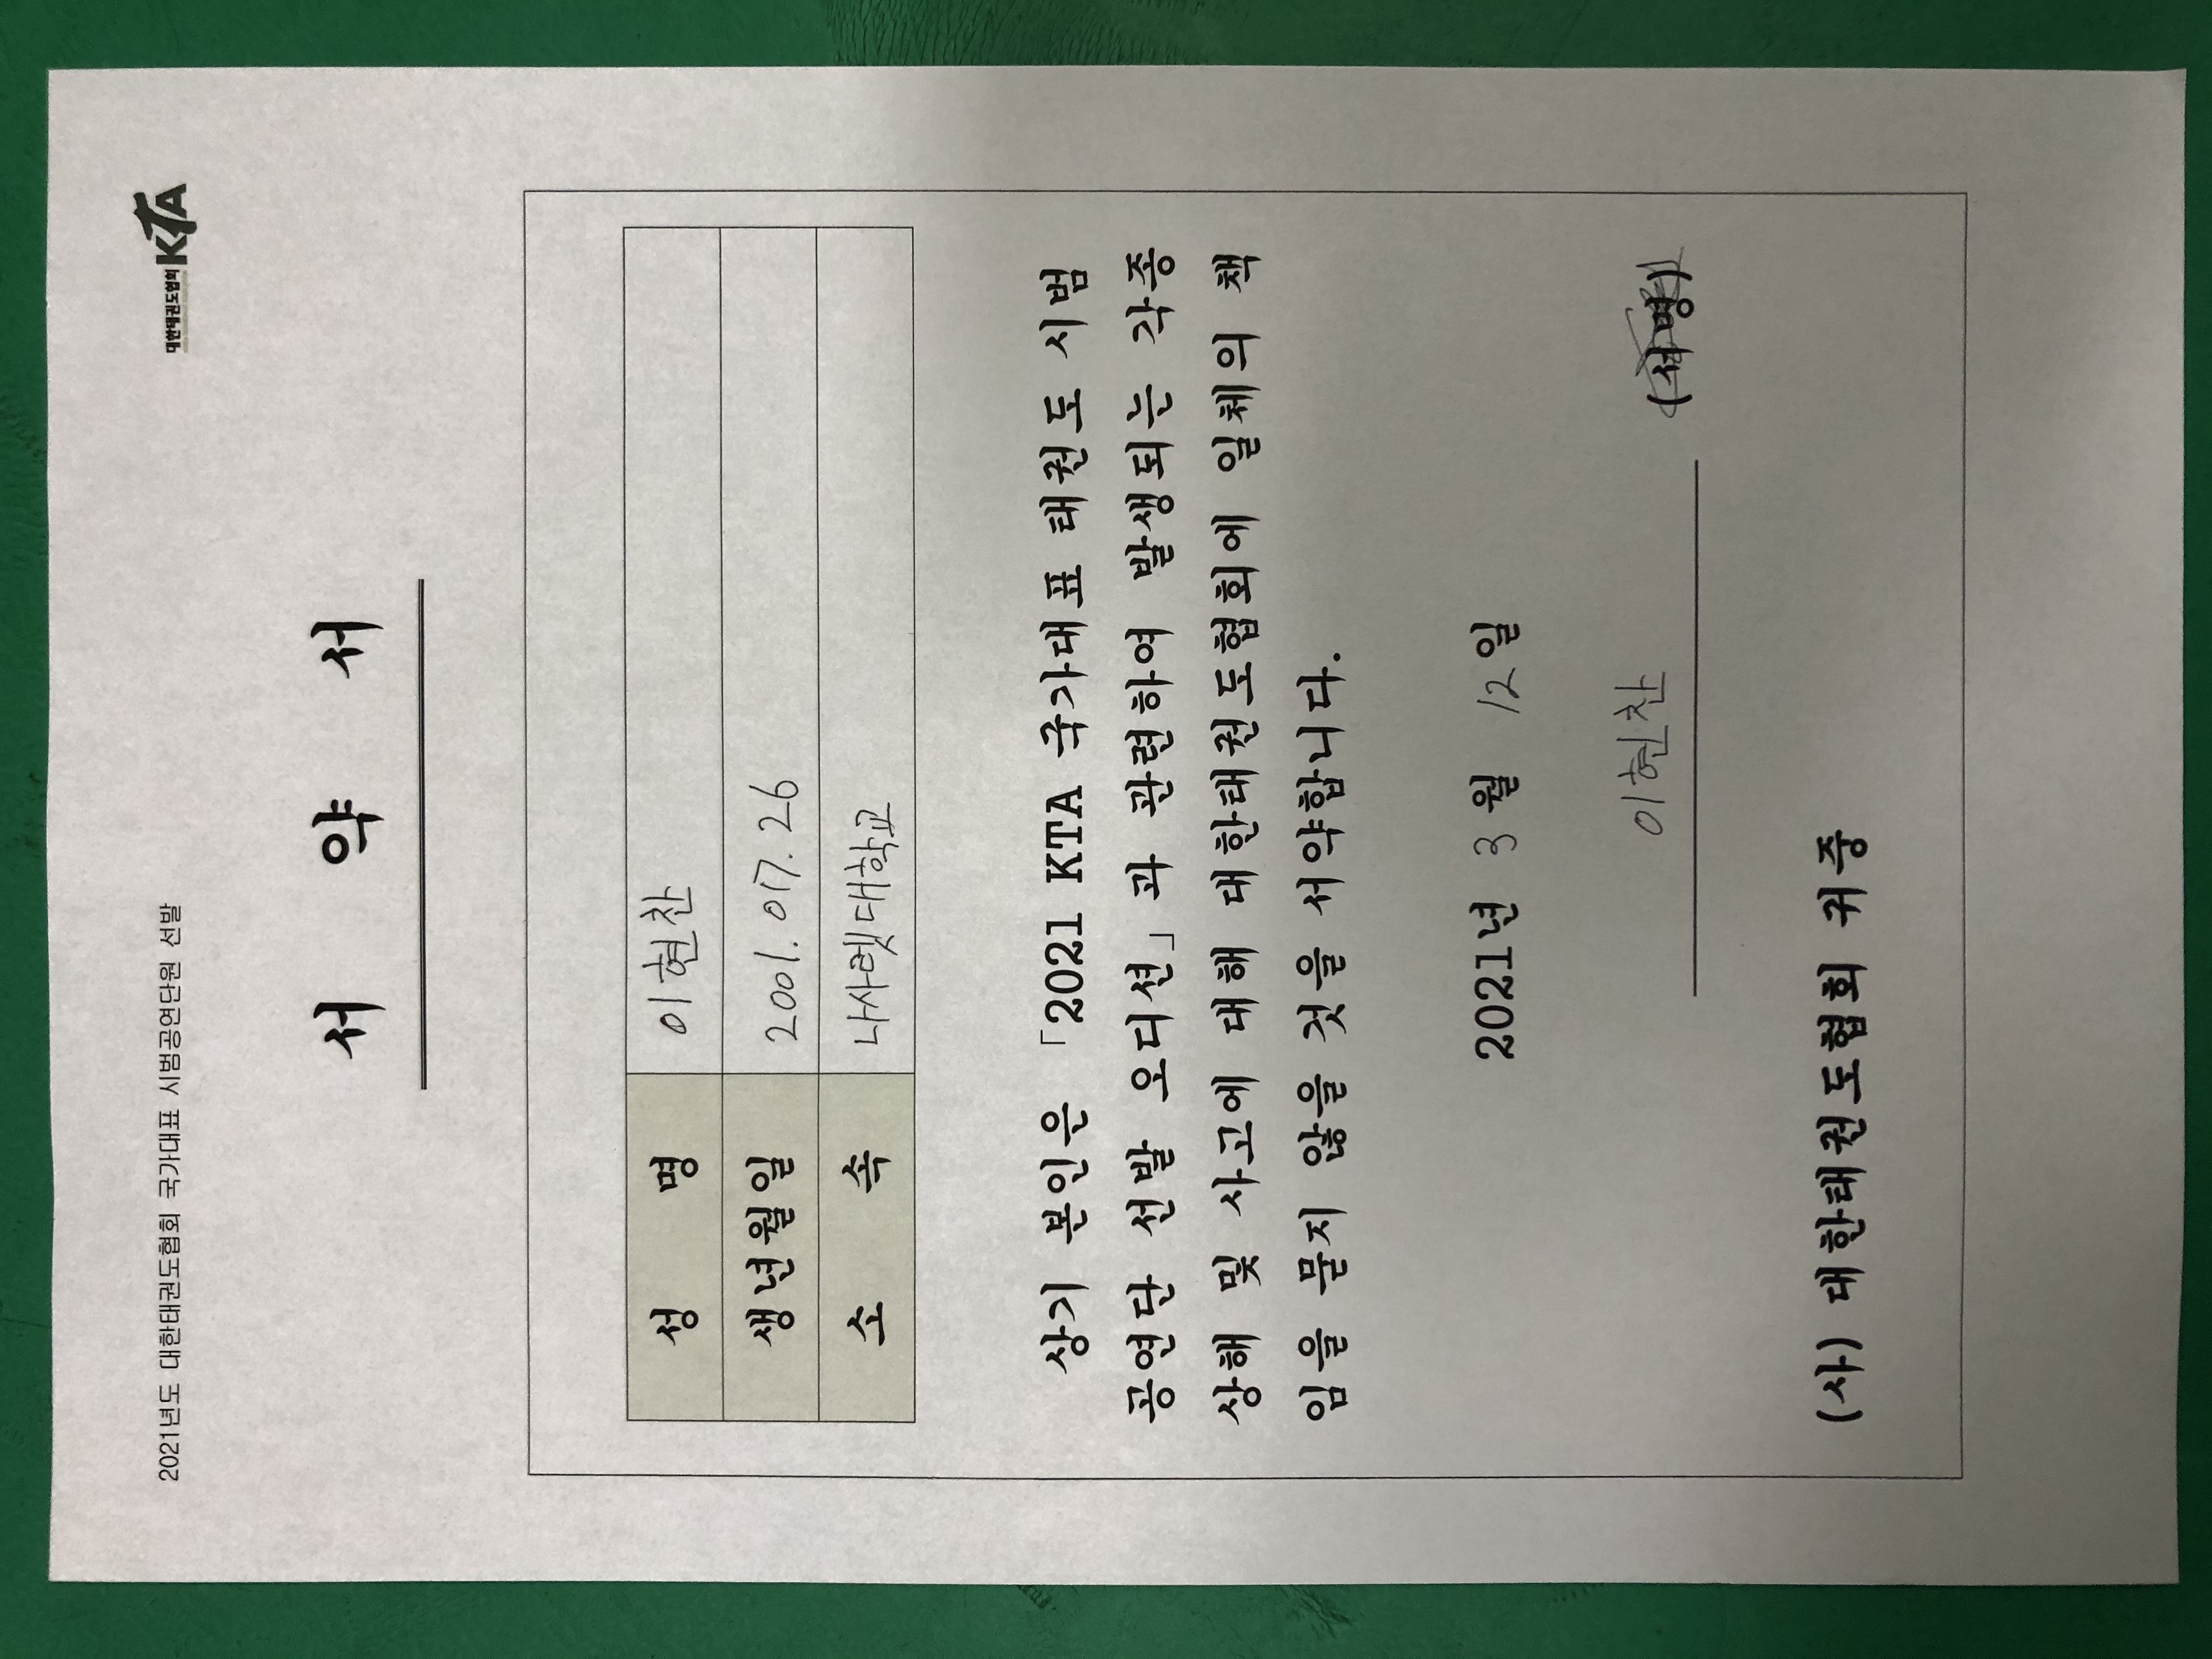 2021년도 대한태권도협회 국가대표 시범공연단원 선발
대한태권도협회 KTA
서 약 서
성 명 이현찬
생년월일 2001. 07. 26
소 속 나사렛대학교
상기 본인은 「2021 KTA 국가대표 태권도 시범
공연단 선발 오디션」과 관련하여 발생되는 각종
상해 및 사고에 대해 대한태권도협회에 일체의 책
임을 묻지 않을 것을 서약합니다.
2021년 3월 12일
이현찬 (서명)
(사) 대한태권도협회 귀중